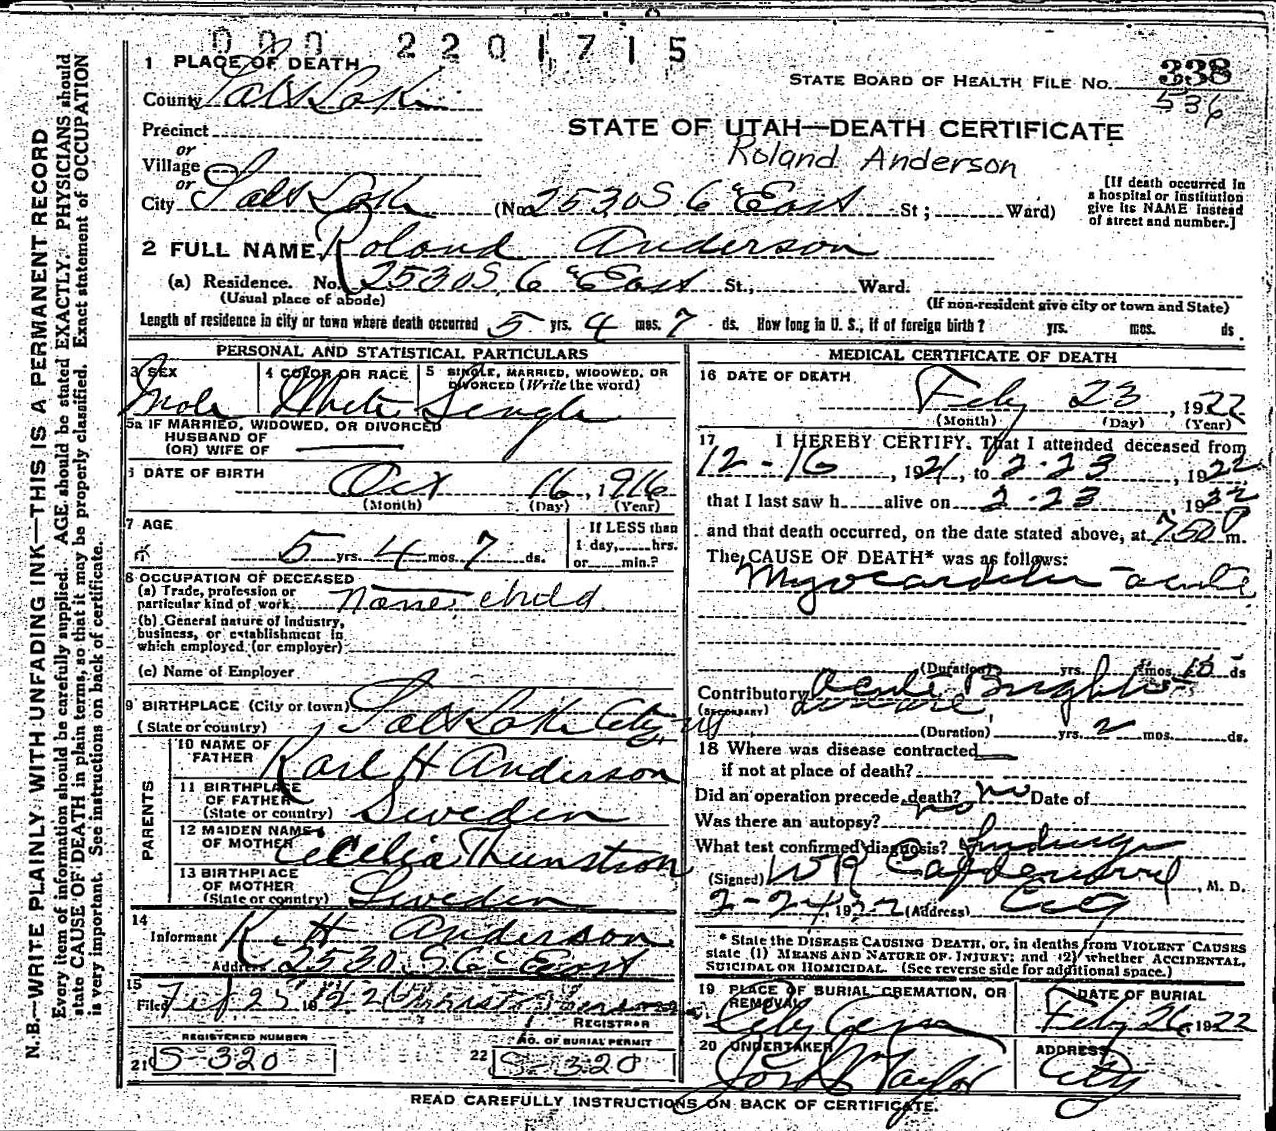 000 2201715
1 PLACE OF DEATH
STATE BOARD OF HEALTH FILE No. 338
536
County Salt Lake
STATE OF UTAH—DEATH CERTIFICATE
Precinct
Roland Anderson
or
Village
or
City Salt Lake (No. 2530 S. 6" East St; Ward)
[If death occurred in
a hospital or institution
give its NAME instead
of street and number.]
2 FULL NAME Roland Anderson
(a) Residence. No. 2530 S. 6" East St., Ward.
(Usual place of abode) (If non-resident give city or town and State)
Length of residence in city or town where death occurred 5 yrs. 4 mos. 7 ds. How long in U. S., if of foreign birth? yrs. mos. ds.
N.B.—WRITE PLAINLY, WITH UNFADING INK—THIS IS A PERMANENT RECORD
Every item of information should be carefully supplied. AGE should be stated EXACTLY. PHYSICIANS should
state CAUSE OF DEATH in plain terms, so that it may be properly classified. Exact statement of OCCUPATION
is very important. See instructions on back of certificate.
PERSONAL AND STATISTICAL PARTICULARS
3 SEX 4 COLOR OR RACE 5 SINGLE, MARRIED, WIDOWED, OR
DIVORCED (Write the word)
Male White Single
5a IF MARRIED, WIDOWED, OR DIVORCED
HUSBAND OF
(OR) WIFE OF
6 DATE OF BIRTH
Oct 16, 1916
(Month) (Day) (Year)
7 AGE
If LESS than
1 day, hrs.
5 yrs. 4 mos. 7 ds. or min.?
8 OCCUPATION OF DECEASED
(a) Trade, profession or
particular kind of work none child
(b) General nature of industry,
business, or establishment in
which employed (or employer)
(c) Name of Employer
9 BIRTHPLACE (City or town)
(State or country) Salt Lake City, Ut
PARENTS
10 NAME OF
FATHER Karl H Anderson
11 BIRTHPLACE
OF FATHER
(State or country) Sweden
12 MAIDEN NAME
OF MOTHER Cecelia Thunstrom
13 BIRTHPLACE
OF MOTHER
(State or country) Sweden
14
Informant K. H. Anderson
Address 2530 S 6" East
15
Filed Feb 25 1922
REGISTRAR
REGISTERED NUMBER NO. OF BURIAL PERMIT
21 S-320 22 S-320
MEDICAL CERTIFICATE OF DEATH
16 DATE OF DEATH
Feby 23, 1922
(Month) (Day) (Year)
17 I HEREBY CERTIFY, That I attended deceased from
12-16, 1921, to 2-23, 1922
that I last saw h alive on 2-23 1922
and that death occurred, on the date stated above, at 750 P m.
The CAUSE OF DEATH* was as follows:
Myocarditis - acute
(Duration) yrs. mos. 10 ds
Contributory Acute Brights
(SECONDARY) disease
(Duration) yrs. 2 mos. ds.
18 Where was disease contracted
if not at place of death?
Did an operation precede death? no Date of
Was there an autopsy? no
What test confirmed diagnosis? findings
(Signed) W R Calderwood, M. D.
2-24, 1922 (Address) City
* State the DISEASE CAUSING DEATH, or, in deaths from VIOLENT CAUSES
state (1) MEANS AND NATURE OF INJURY; and (2) whether ACCIDENTAL,
SUICIDAL OR HOMICIDAL. (See reverse side for additional space.)
19 PLACE OF BURIAL, CREMATION, OR
REMOVAL
City Cem
DATE OF BURIAL
Feby 26, 1922
20 UNDERTAKER
Jos Wm Taylor
ADDRESS
City
READ CAREFULLY INSTRUCTIONS ON BACK OF CERTIFICATE.